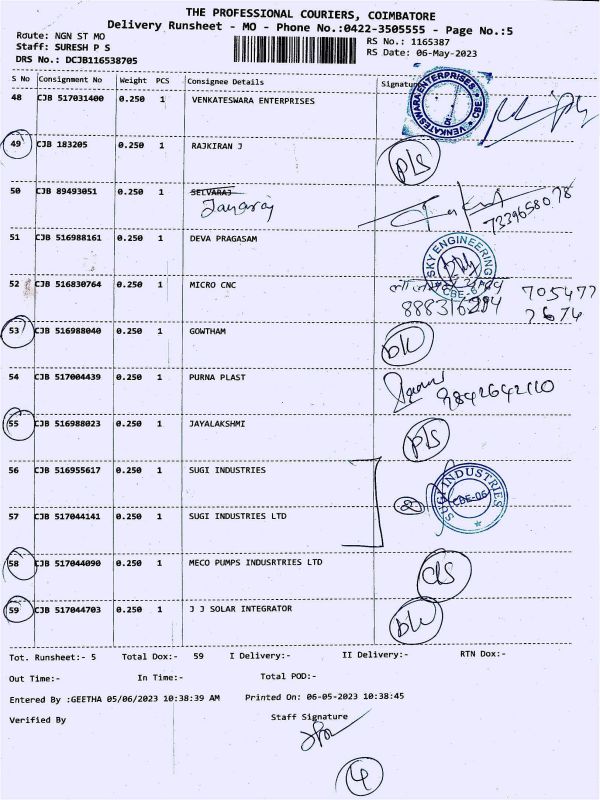 THE PROFESSIONAL COURIERS, COIMBATORE
Delivery Runsheet - MO - Phone No.:0422-3505555 - Page No.:5
Route: NGN ST MO
Staff: SURESH P S
DRS No.: DCJB116538705
RS No.: 1165387
RS Date: 06-May-2023
S No Consignment No Weight PCS Consignee Details Signature
48 CJB 517031400 0.250 1 VENKATESWARA ENTERPRISES
VENKATESWARA ENTERPRISES
49 CJB 183205 0.250 1 RAJKIRAN J pls
50 CJB 89493051 0.250 1 SELVARAJ
Jayaraj
7339658078
51 CJB 516988161 0.250 1 DEVA PRAGASAM
SKY ENGINEERING CBE-6
52 CJB 516830764 0.250 1 MICRO CNC
705477
7674
53 CJB 516988040 0.250 1 GOWTHAM
54 CJB 517004439 0.250 1 PURNA PLAST
9842642110
55 CJB 516988023 0.250 1 JAYALAKSHMI pls
56 CJB 516955617 0.250 1 SUGI INDUSTRIES
SUGI INDUSTRIES CBE-06
57 CJB 517044141 0.250 1 SUGI INDUSTRIES LTD
58 CJB 517044090 0.250 1 MECO PUMPS INDUSRTRIES LTD
59 CJB 517044703 0.250 1 J J SOLAR INTEGRATOR
Tot. Runsheet:- 5 Total Dox:- 59 I Delivery:- II Delivery:- RTN Dox:-
Out Time:- In Time:- Total POD:-
Entered By :GEETHA 05/06/2023 10:38:39 AM Printed On: 06-05-2023 10:38:45
Verified By Staff Signature
4